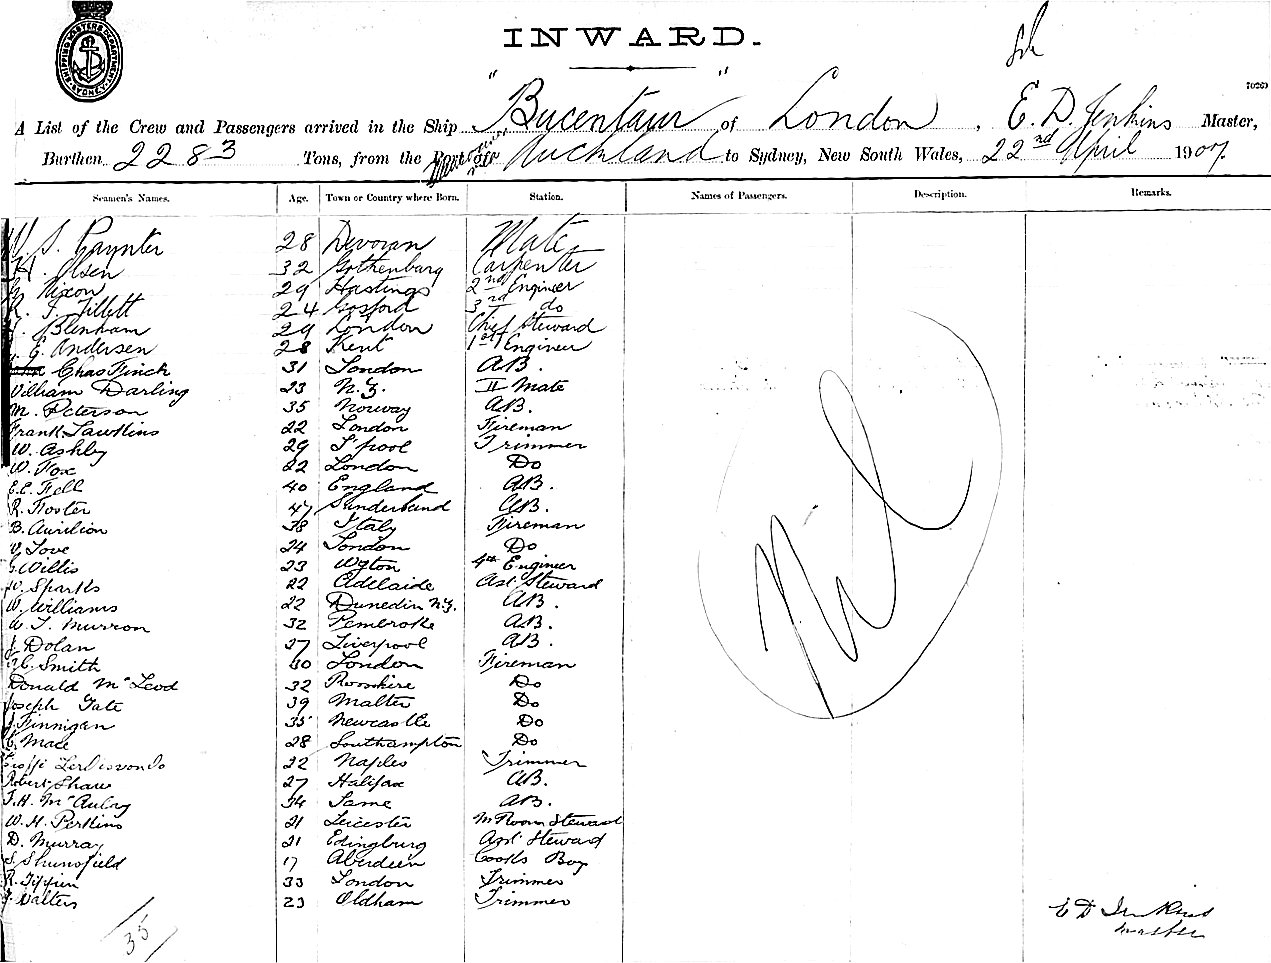 SHIPPING MASTERS DEPARTMENT SYDNEY
INWARD.
A List of the Crew and Passengers arrived in the Ship "Bucentaur" of London, E. D. Jenkins Master,
Burthen 2283 Tons, from the Port of Auckland to Sydney, New South Wales, 22nd April 1907.
Seamen's Names. Age. Town or Country where Born. Station. Names of Passengers. Description. Remarks.
S. Paynter 28 Devoran Mate
H. Olsen 32 Gothenburg Carpenter
Nixon 29 Hastings 2nd Engineer
R. J. Tillett 24 Gosford 3rd do
Blenham 29 London Chief Steward
E. Andersen 28 Kent 1st Engineer
Chas Finch 31 London AB.
William Darling 23 N.Z. II Mate
M. Peterson 35 Norway AB.
Frank Sawkins 22 London Fireman
W. Ashby 29 L'pool Trimmer
W. Fox 22 London Do
E.E. Fell 40 England AB.
R. Foster 47 Sunderland AB.
B. Aurilion 38 Italy Fireman
Love 24 London Do
Willis 23 Wgton 4th Engineer
W. Sparks 22 Adelaide Ast Steward
W. Williams 22 Dunedin N.Z. AB.
W. T. Murron 32 Pembroke AB.
J. Dolan 27 Liverpool AB.
Smith 30 London Fireman
Donald McLeod 32 Rosshire Do
Joseph Tate 39 Malter Do
J. Finnigan 35 Newcastle Do
C. Mace 28 Southampton Do
22 Naples Trimmer
Robert Shaw 27 Halifax AB.
J.H. McAulay 34 Same AB.
W. H. Perkins 21 Leicester M Room Steward
D. Murray 21 Edingburg Asst Steward
S. Shunsfield 17 Aberdeen Cooks Boy
R. Tippin 33 London Trimmer
J. Walters 23 Oldham Trimmer
35
Nil
E D Jenkins
Master